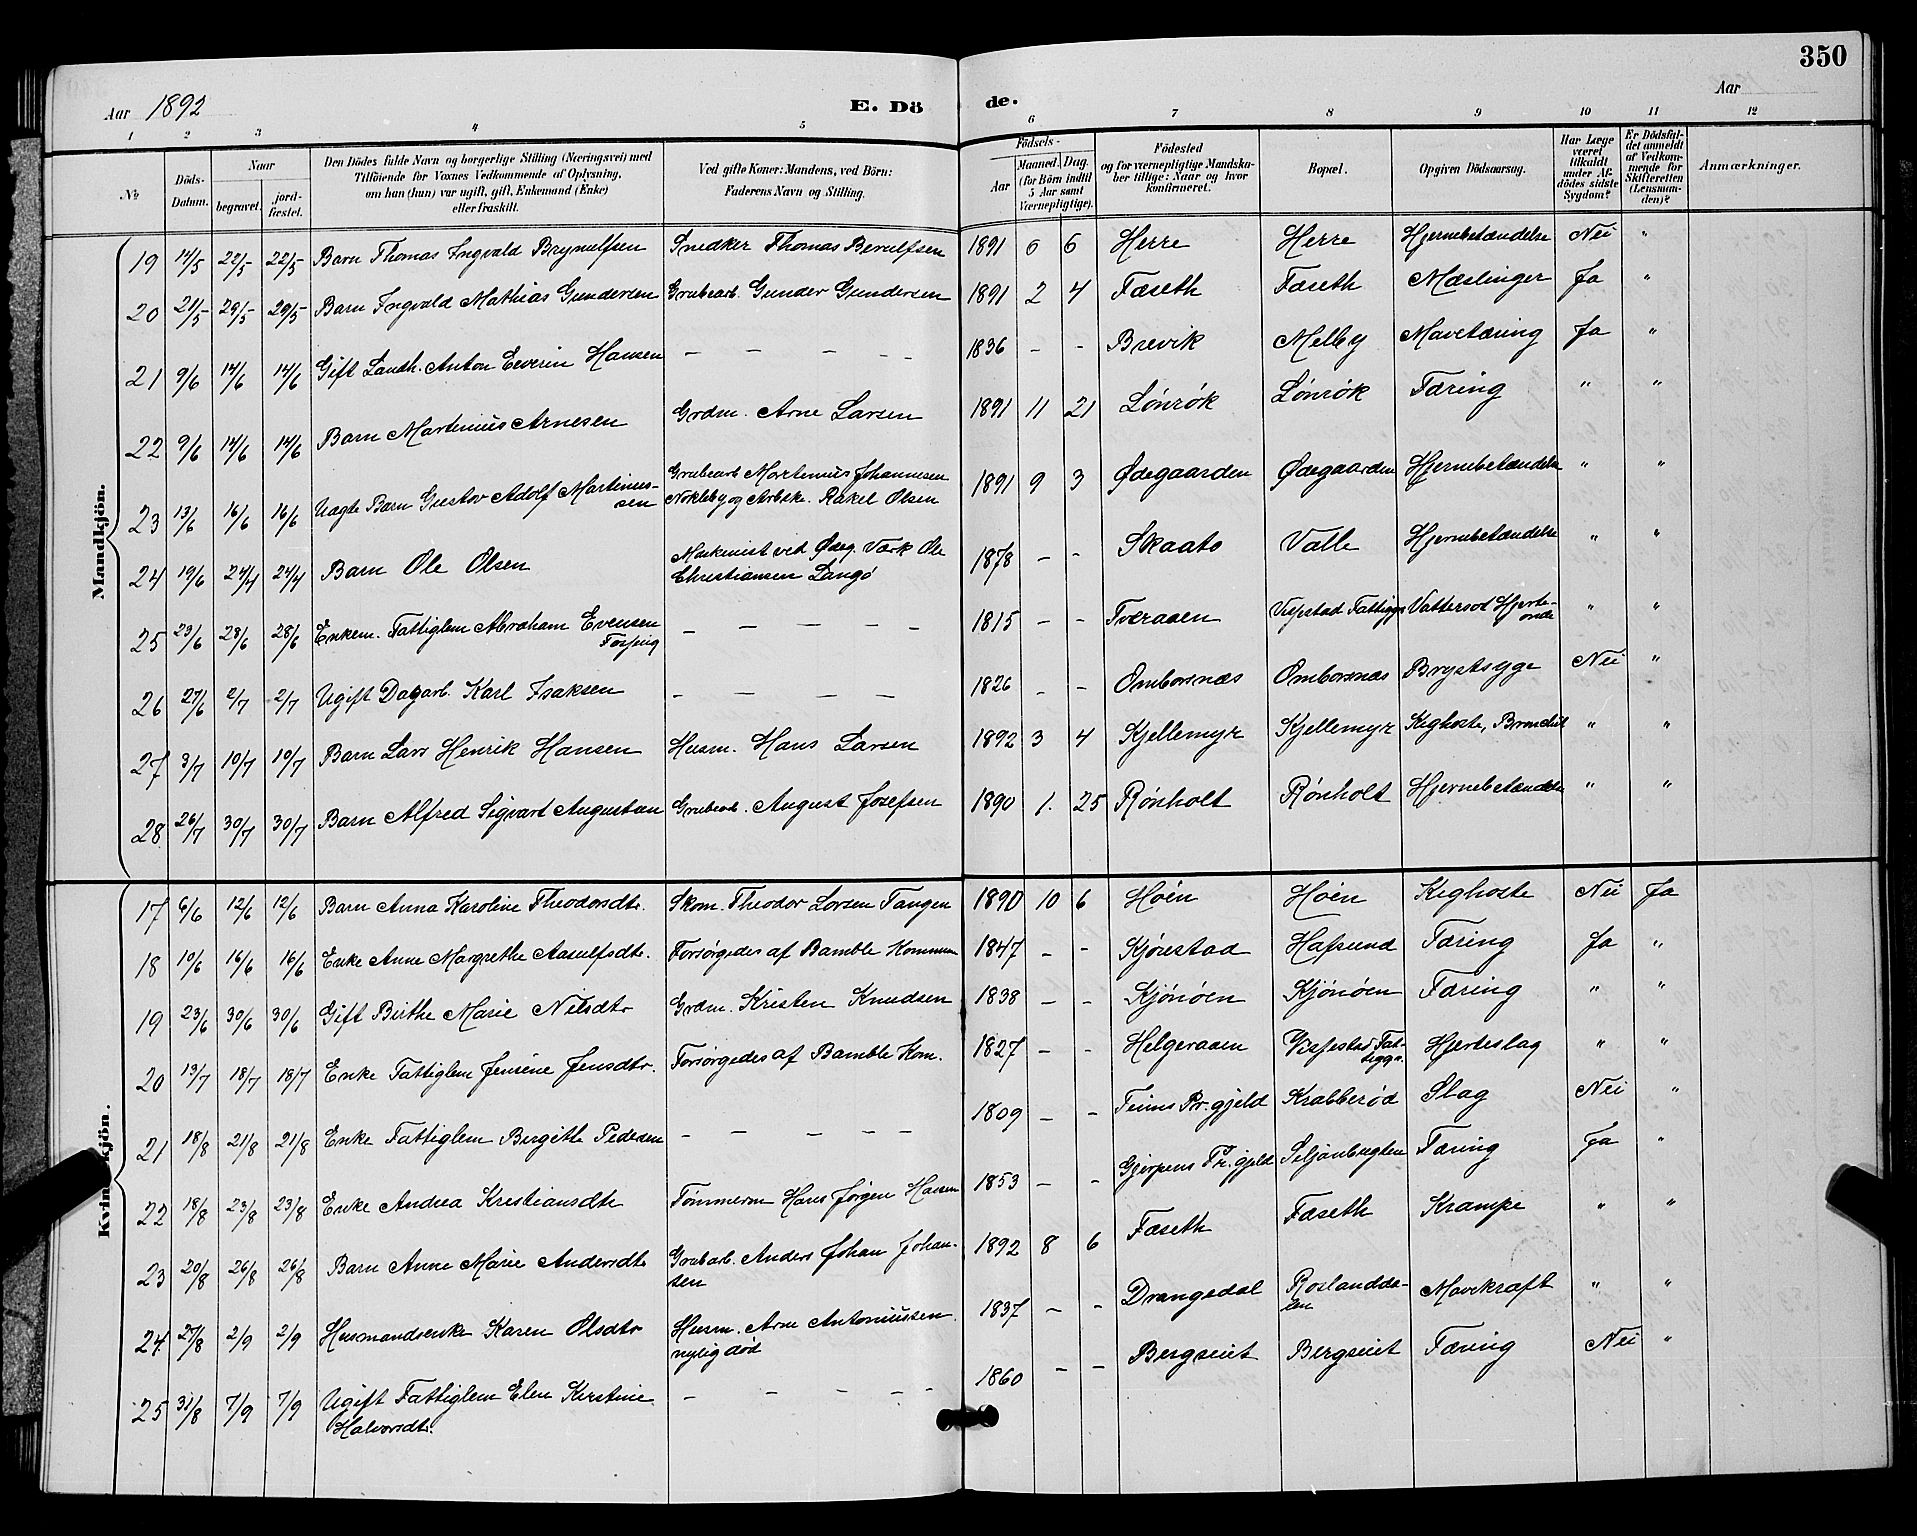 350
Aar 1892
E. Dö
de.
Aar
1 2 3 4 5 6 7 8 9 10 11 12
No
Döds-
Datum.
Naar
begravet.
jord-
fæstet.
Den Dödes fulde Navn og borgerlige Stilling (Næringsvei) med
Tilföiende for Voxnes Vedkommende af Oplysning,
om han (hun) var ugift, gift, Enkemand (Enke)
eller fraskilt.
Ved gifte Koner: Mandens, ved Börn:
Faderens Navn og Stilling.
Födsels-
Aar
Maaned. Dag.
(for Börn indtil
5 Aar samt
Værnepligtige).
Födested
og for værnepligtige Mandska-
ber tillige: Naar og hvor
konfirmeret.
Bopæl.
Opgiven Dödsaarsag.
Har Læge
været
tilkaldt
under Af-
dödes sidste
Sygdom?
Er Dödsfal-
det anmeldt
af Vedkom-
mende for
Skifteretten
(Lensman-
den)?
Anmærkninger.
Mandkjön.
19 14/5 22/5 22/5 Barn Thomas Ingvald Brynulfsen Snedker Thomas Berulfsen 1891 6 6 Herre Herre Hjernebetændelse Nei "
20 21/5 29/5 29/5 Barn Ingvald Mathias Gundersen Grubearb. Gunder Gundersen 1891 2 4 Fæseth Fæseth Mæslinger Ja "
21 9/6 14/6 14/6 Gift Landh. Anton Severin Hansen – – – – – 1836 – – Brevik Melby Mavetæring Ja "
22 9/6 14/6 14/6 Barn Martinius Arnesen Grdm. Arne Larsen 1891 11 21 Lönrök Lönrök Tæring " "
23 13/6 16/6 16/6 Uægte Barn Gustav Adolf Martinius-
sen Grubearb Martinius Johannesen
Nokleby og Arbske. Rakel Olsen 1891 9 3 Ødegaarden Ødegaarden Hjernebetændelse " "
24 19/6 24/4 24/4 Barn Ole Olsen Maskinist ved Ødeg. Værk Ole
Christiansen Langö 1878 – – Skaatø Valle Hjernebetændelse " "
25 23/6 28/6 28/6 Enkem. Fattiglem Abraham Evensen
– – – – – 1815 – – Tveraaen Vispstad Fattigg. Vattersot Hjerte-
onde " "
26 27/6 2/7 2/7 Ugift Dagarb. Karl Isaksen – – – – 1826 – – Omborsnæs Omborsnæs Brystsyge Nei "
27 3/7 10/7 10/7 Barn Lars Henrik Hansen Husm. Hans Larsen 1892 3 4 Kjellemyr Kjellemyr Kighoste, Bronchit " "
28 26/7 30/7 30/7 Barn Alfred Sigvart Augustsen Grubearb. August Josefsen 1890 1. 25 Rönholt Rönholt Hjernebetændelse " "
Kvindekjön.
17 6/6 12/6 12/6 Barn Anna Karoline Theodorsdtr. Skom. Theodor Larsen Tangen 1890 10 6 Høen Høen Kighoste Nei Ja
18 10/6 16/6 16/6 Enke Anne Margrethe Aasulfsdtr. Forsörgedes af Bamble Kommune 1847 – – Kjörestad Hafsund Tæring Ja "
19 23/6 30/6 30/6 Gift Birthe Marie Nilsdtr Grdm. Kristen Knudsen 1838 – – Kjönöen Kjönöen Tæring " "
20 13/7 18/7 18/7 Enke Fattiglem Jensine Jensdtr. Forsörgedes af Bamble Kom. 1827 – – Helgeraaen Vispestad Fat-
tigg. Hjerteslag " "
21 18/8 21/8 21/8 Enke Fattiglem Birgithe Pedersen – – – – – 1809 – – Teims Pr.gjeld Krabberød Slag Nei "
22 18/8 23/8 23/8 Enke Andrea Kristiansdtr Tömmerm Hans Jörgen Hansen 1853 – – Gjerpens Pr.gjeld Siljanbugten Tæring Ja "
23 20/8 26/8 26/8 Barn Anne Marie Andersdtr Grubarb. Anders Johan Johan-
sen 1892 8 6 Fæseth Fæseth Krampe " "
24 27/8 2/9 2/9 Husmandsenke Karen Olsdtr Husm. Arne Antoniussen
nylig död 1837 – – Drangedal Roslandda-
len Mavekræft " "
25 31/8 7/9 7/9 Ugift Fattiglem Elen Kirstine
Halvorsdtr. – – – – – 1860 – – Bergseiet Bergseiet Tæring Nei "